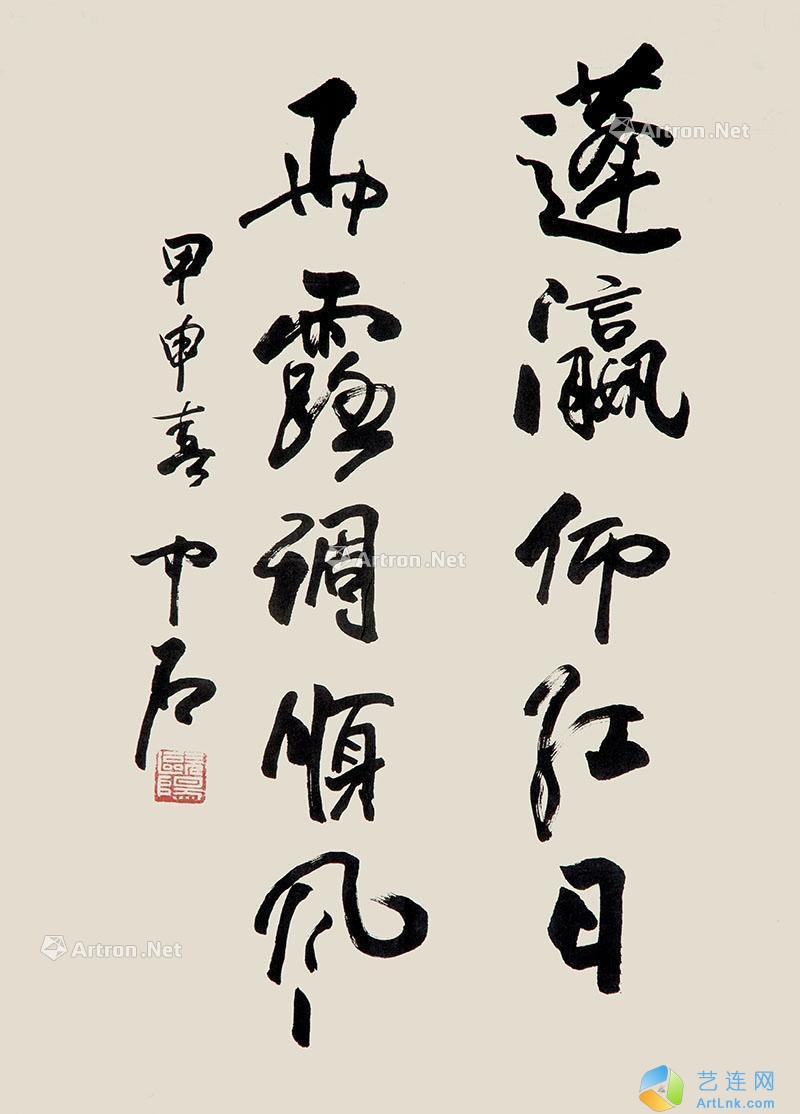 蓬瀛仰红日
雨露调顺风
甲申春 中石
歐陽
Artron.Net
Artron.Net
Artron.Net
艺连网
ArtLnk.com